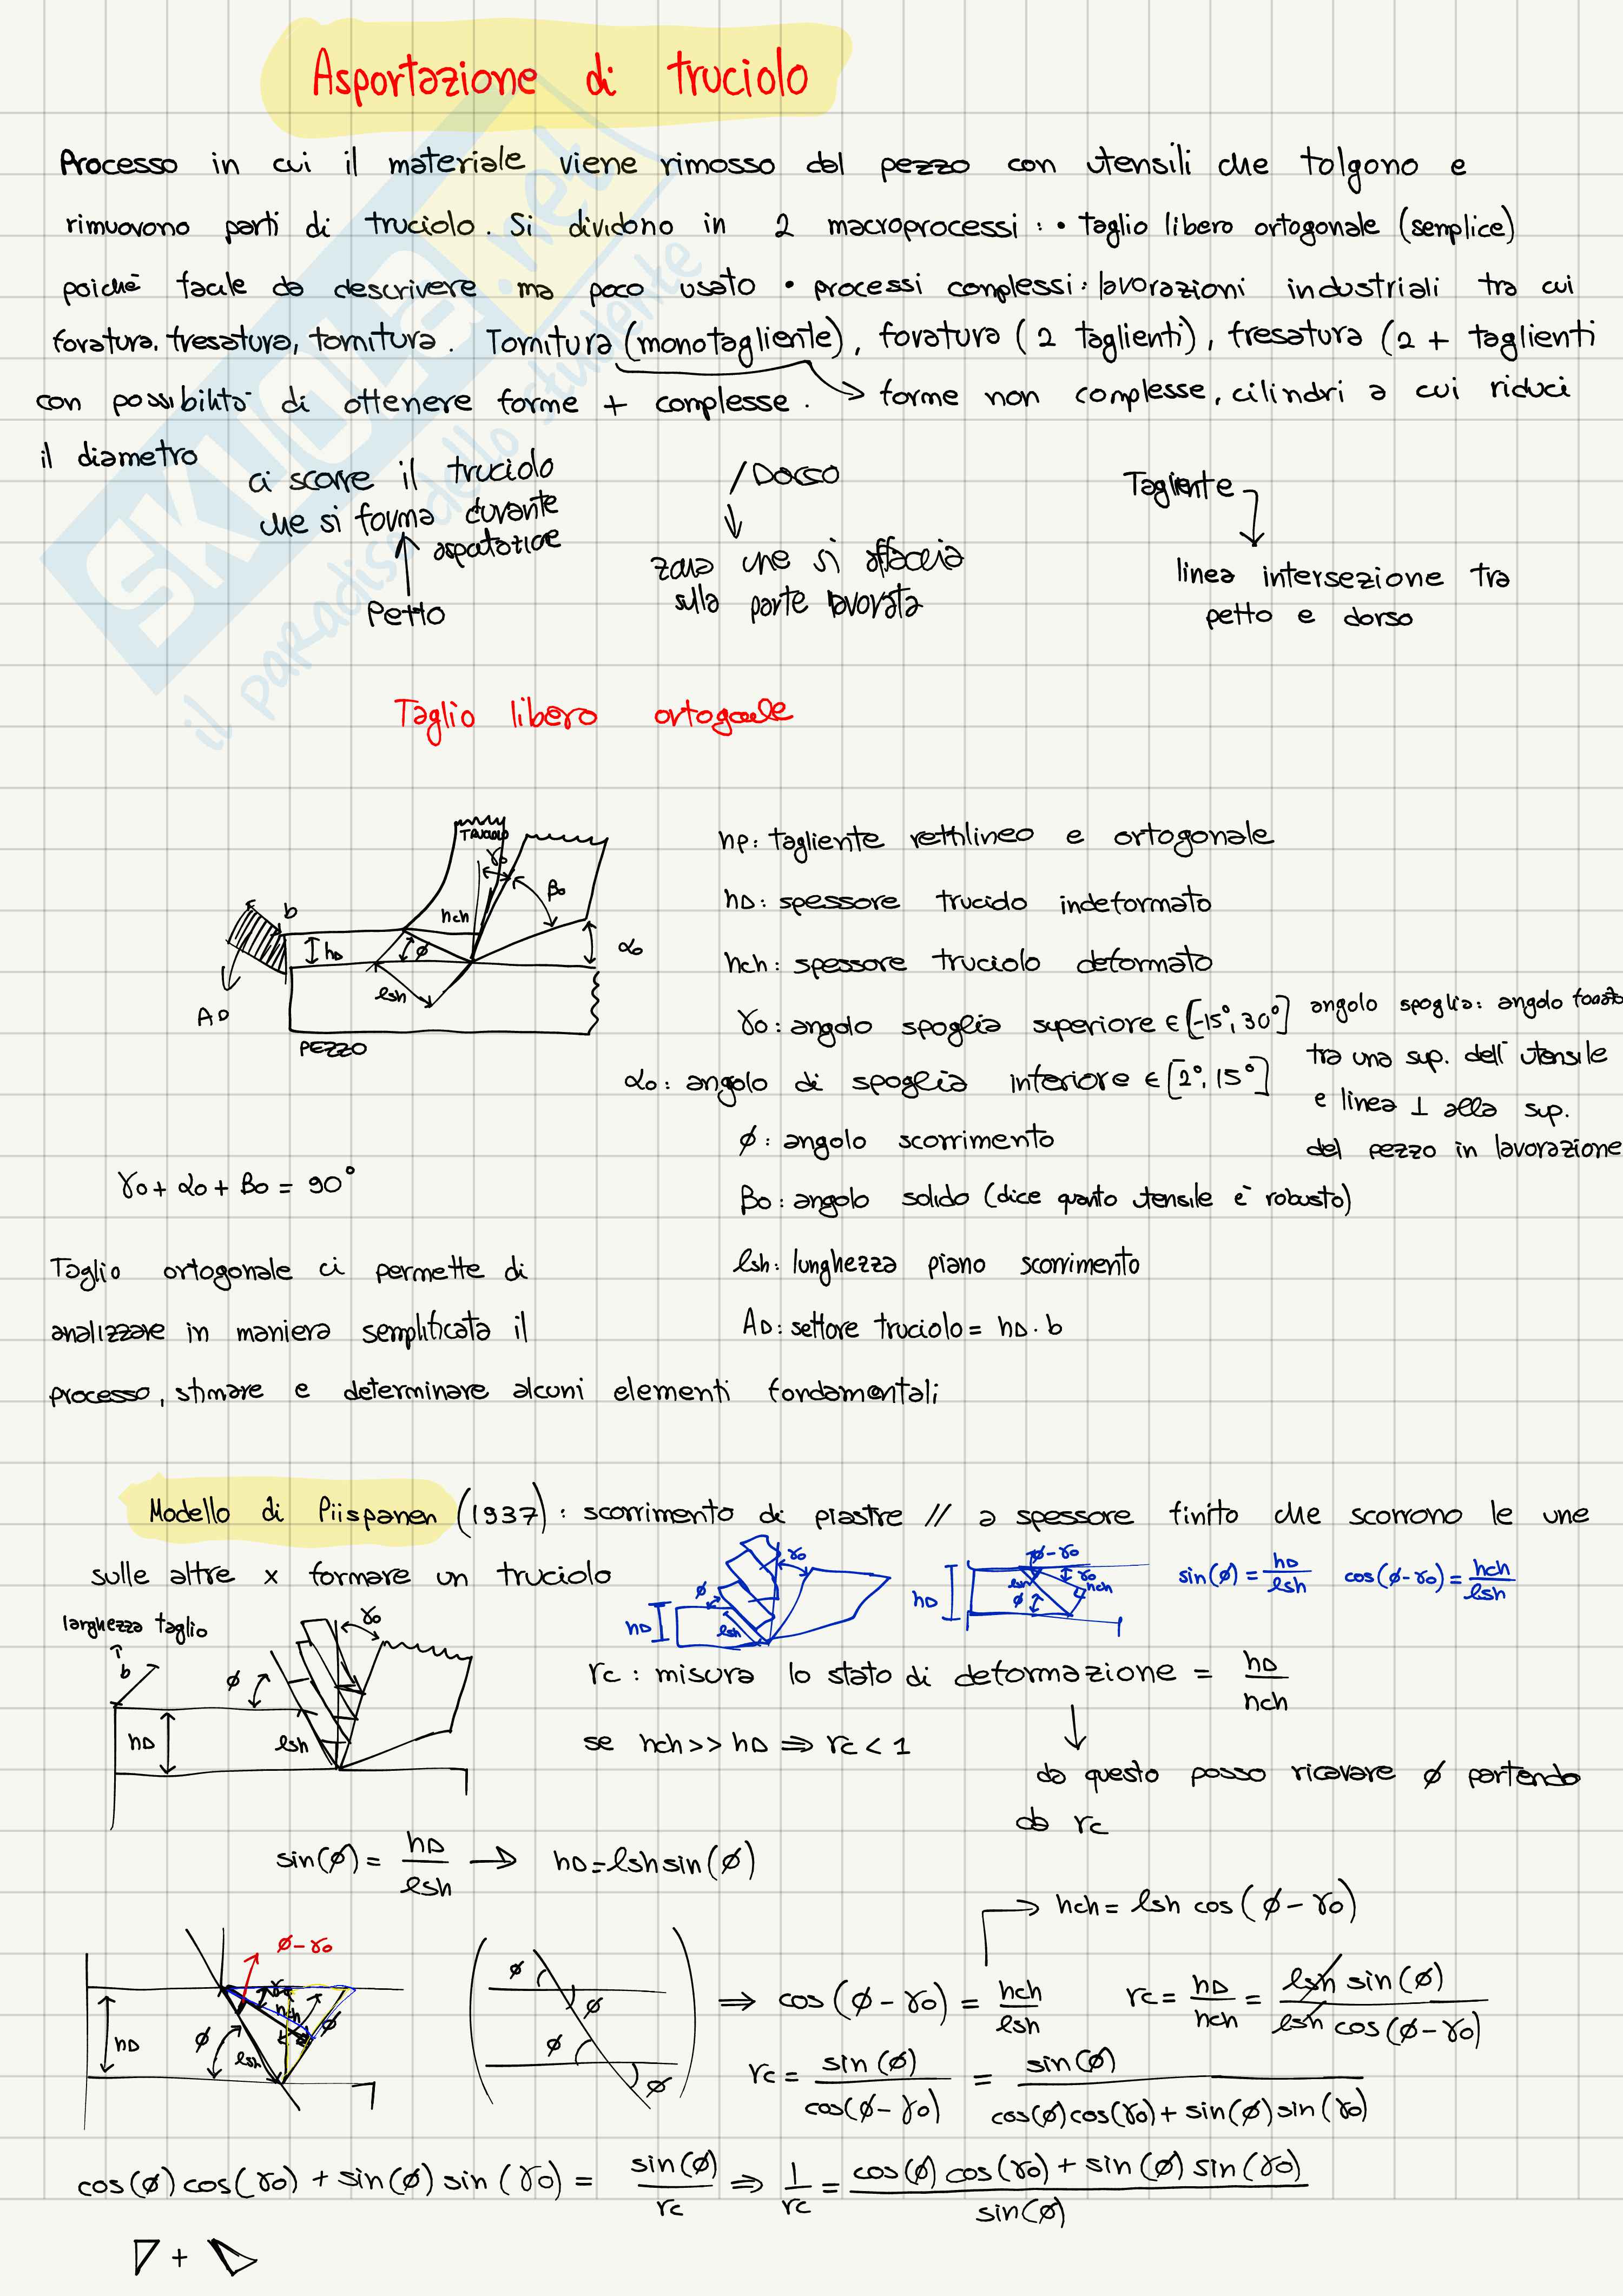 Asportazione di truciolo
Processo in cui il materiale viene rimosso dal pezzo con utensili che tolgono e
rimuovono parti di truciolo. Si dividono in 2 macroprocessi: • taglio libero ortogonale (semplice)
poichè facile da descrivere ma poco usato • processi complessi: lavorazioni industriali tra cui
foratura, fresatura, tornitura. Tornitura (monotagliente), foratura (2 taglienti), fresatura (2 + taglienti
con possibilità di ottenere forme + complesse. → forme non complesse, cilindri a cui riduci
il diametro
ci scorre il truciolo
che si forma durante
asportazione
Petto
/Dorso
zona che si affaccia
sulla parte lavorata
Tagliente
linea intersezione tra
petto e dorso
Taglio libero ortogonale
TRUCIOLO
γo
βo
hch
b
hD
ϕ
αo
lsh
AD
PEZZO
hp: tagliente rettilineo e ortogonale
hD: spessore truciolo indeformato
hch: spessore truciolo deformato
γo: angolo spoglia superiore ∈ [-15°, 30°]
αo: angolo di spoglia inferiore ∈ [2°, 15°]
angolo spoglia: angolo
tra una sup. dell'utensile
e linea ⊥ alla sup.
del pezzo in lavorazione
ϕ: angolo scorrimento
γo + αo + βo = 90°
βo: angolo solido (dice quanto utensile è robusto)
lsh: lunghezza piano scorrimento
AD: settore truciolo = hD · b
Taglio ortogonale ci permette di
analizzare in maniera semplificata il
processo, stimare e determinare alcuni elementi fondamentali
Modello di Piispanen (1937): scorrimento di piastre // a spessore finito che scorrono le une
sulle altre x formare un truciolo
γo
ϕ
hD
lsh
ϕ-γo
γo
hch
lsh
ϕ
hD
sin(ϕ) = hD/lsh cos(ϕ-γo) = hch/lsh
larghezza taglio
b
γo
ϕ
hD
lsh
rc: misura lo stato di deformazione = hD/hch
se hch >> hD ⇒ rc < 1
da questo posso ricavare ϕ partendo
da rc
sin(ϕ) = hD/lsh → hD = lsh sin(ϕ)
→ hch = lsh cos(ϕ-γo)
ϕ-γo
γo
hch
ϕ
hD
ϕ
lsh
ϕ
ϕ
ϕ
ϕ
⇒ cos(ϕ-γo) = hch/lsh rc = hD/hch = lsh sin(ϕ)/lsh cos(ϕ-γo)
rc = sin(ϕ)/cos(ϕ-γo) = sin(ϕ)/cos(ϕ)cos(γo) + sin(ϕ)sin(γo)
cos(ϕ)cos(γo) + sin(ϕ)sin(γo) = sin(ϕ)/rc ⇒ 1/rc = cos(ϕ)cos(γo) + sin(ϕ)sin(γo)/sin(ϕ)
+
SKUOLA.net
il paradiso dello studente